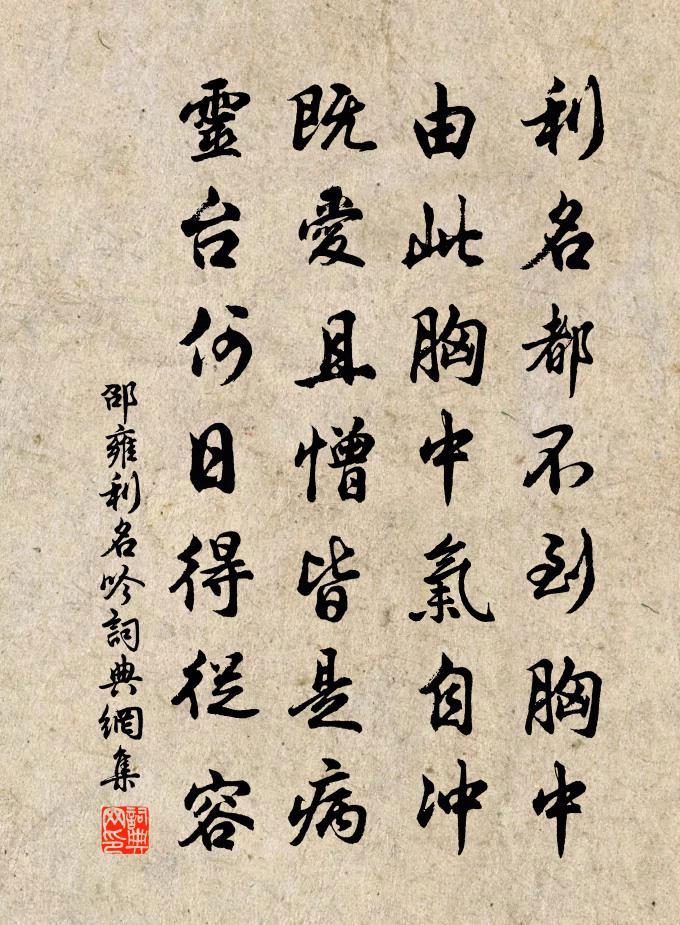 利名都不到胸中
由此胸中氣自沖
既愛且憎皆是病
靈台何日得從容
邵雍利名吟詞典網集
詞典網印